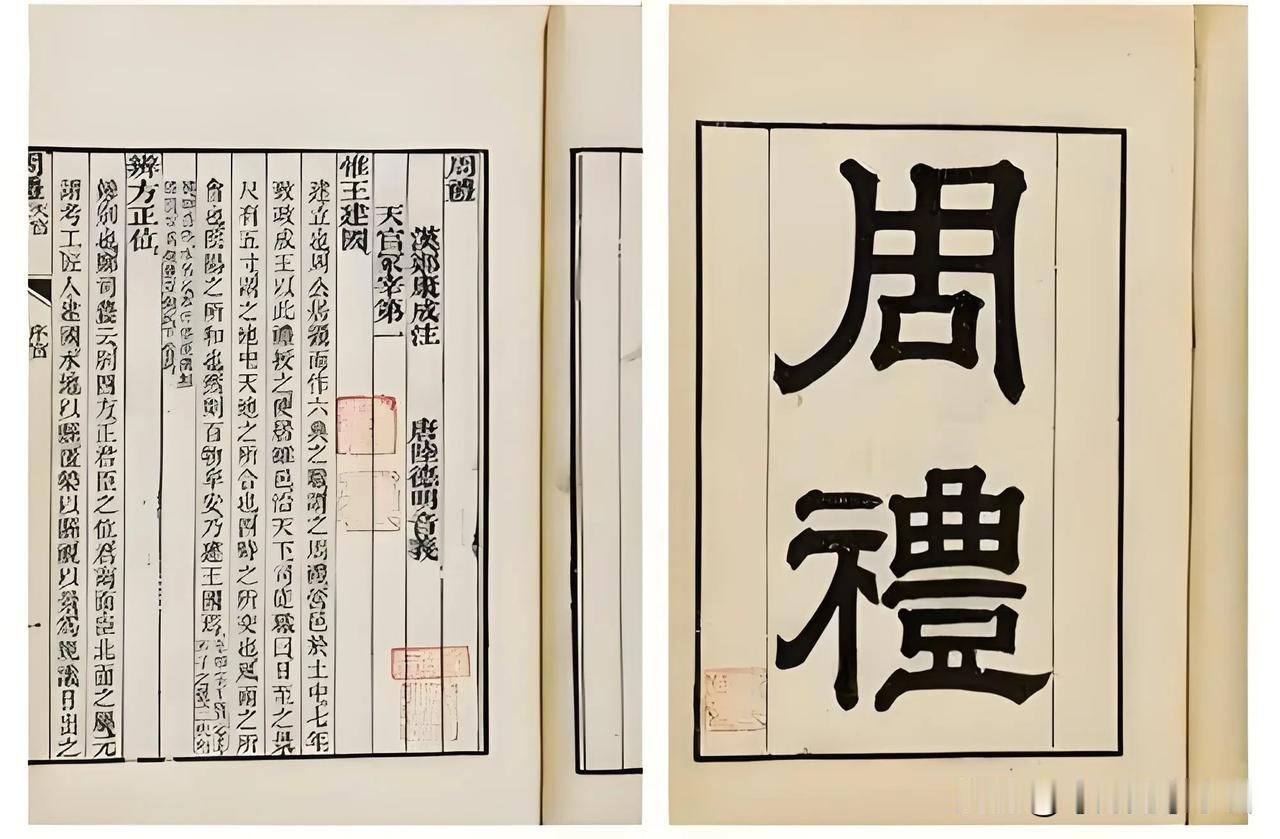 周禮
周禮
漢鄭康成注 唐陸德明音義
天官冢宰第一
惟王建國
建立也周公居攝而作六典之職謂之周禮營邑於土中七年
致政成王以此禮授之使居雒邑治天下司徒職曰日至之景
尺有五寸謂之地中天地之所合也四時之所交也風雨之所
會也陰陽之所和也然則百物阜安乃建王國焉
辨方正位
辨別也鄭司農云別四方正君臣之位君南面臣北面之屬元
謂考工匠人建國水地以縣置槷以縣視以景為規識日出之
周禮 天官
序官